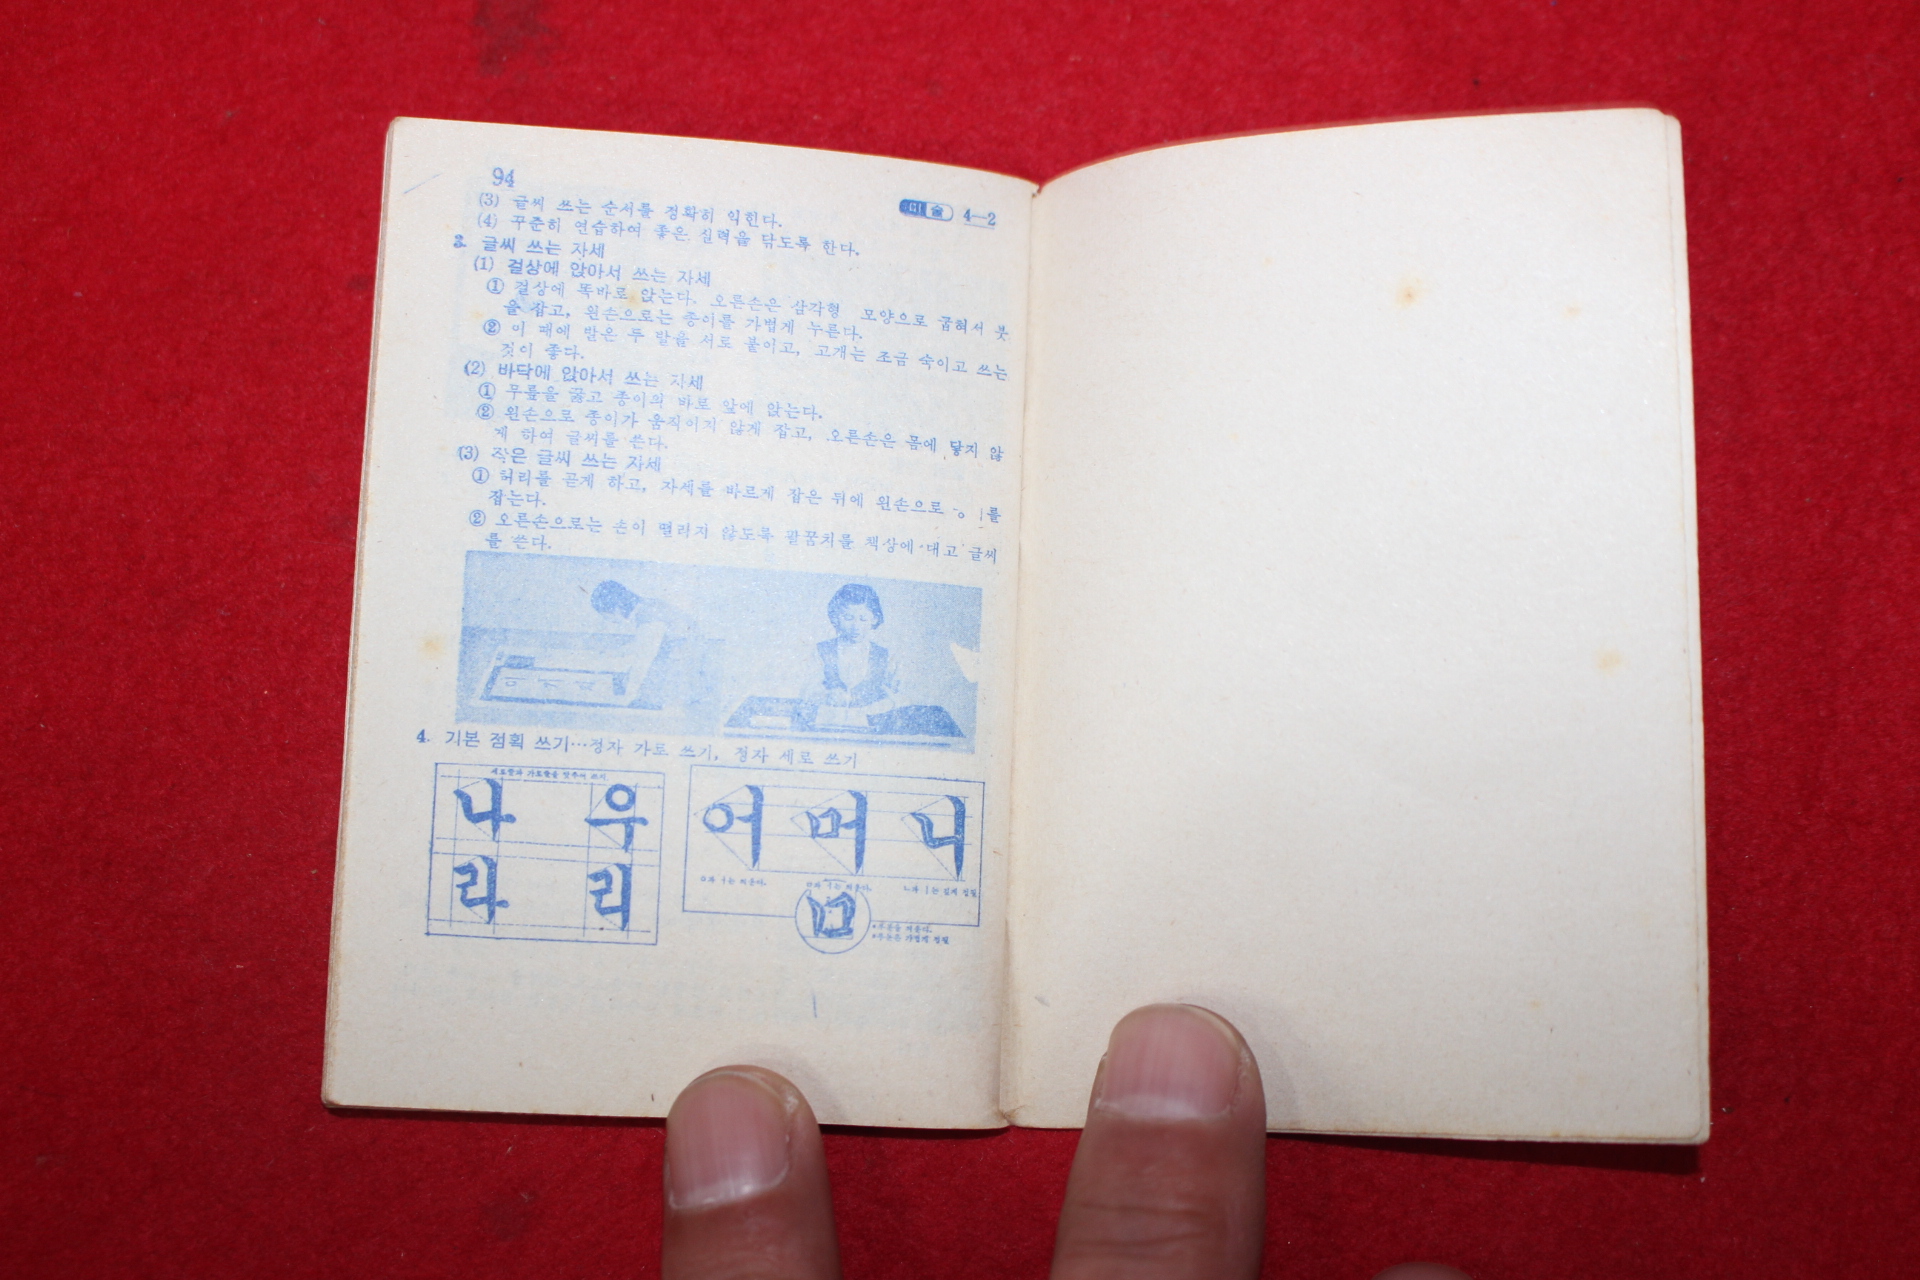 94
미술 4—2
(3) 글씨 쓰는 순서를 정확히 익힌다.
(4) 꾸준히 연습하여 좋은 실력을 닦도록 한다.
3. 글씨 쓰는 자세
(1) 걸상에 앉아서 쓰는 자세
① 걸상에 똑바로 앉는다. 오른손은 삼각형 모양으로 굽혀서 붓
을 잡고, 왼손으로는 종이를 가볍게 누른다.
② 이 때에 발은 두 발을 서로 붙이고, 고개는 조금 숙이고 쓰는
것이 좋다.
(2) 바닥에 앉아서 쓰는 자세
① 무릎을 꿇고 종이의 바로 앞에 앉는다.
② 왼손으로 종이가 움직이지 않게 잡고, 오른손은 몸에 닿지 않
게 하여 글씨를 쓴다.
(3) 작은 글씨 쓰는 자세
① 허리를 곧게 하고, 자세를 바르게 잡은 뒤에 왼손으로
잡는다.
② 오른손으로는 손이 떨리지 않도록 팔꿈치를 책상에 대고 글씨
를 쓴다.
4. 기본 점획 쓰기…정자 가로 쓰기, 정자 세로 쓰기
세로줄과 가로줄을 맞추어 쓰기
나 우
라 리
어 머 니
ㅇ과 ㅓ는 띄운다.
ㅁ과 ㅓ는 띄운다.
ㄴ과 ㅣ는
ㅁ